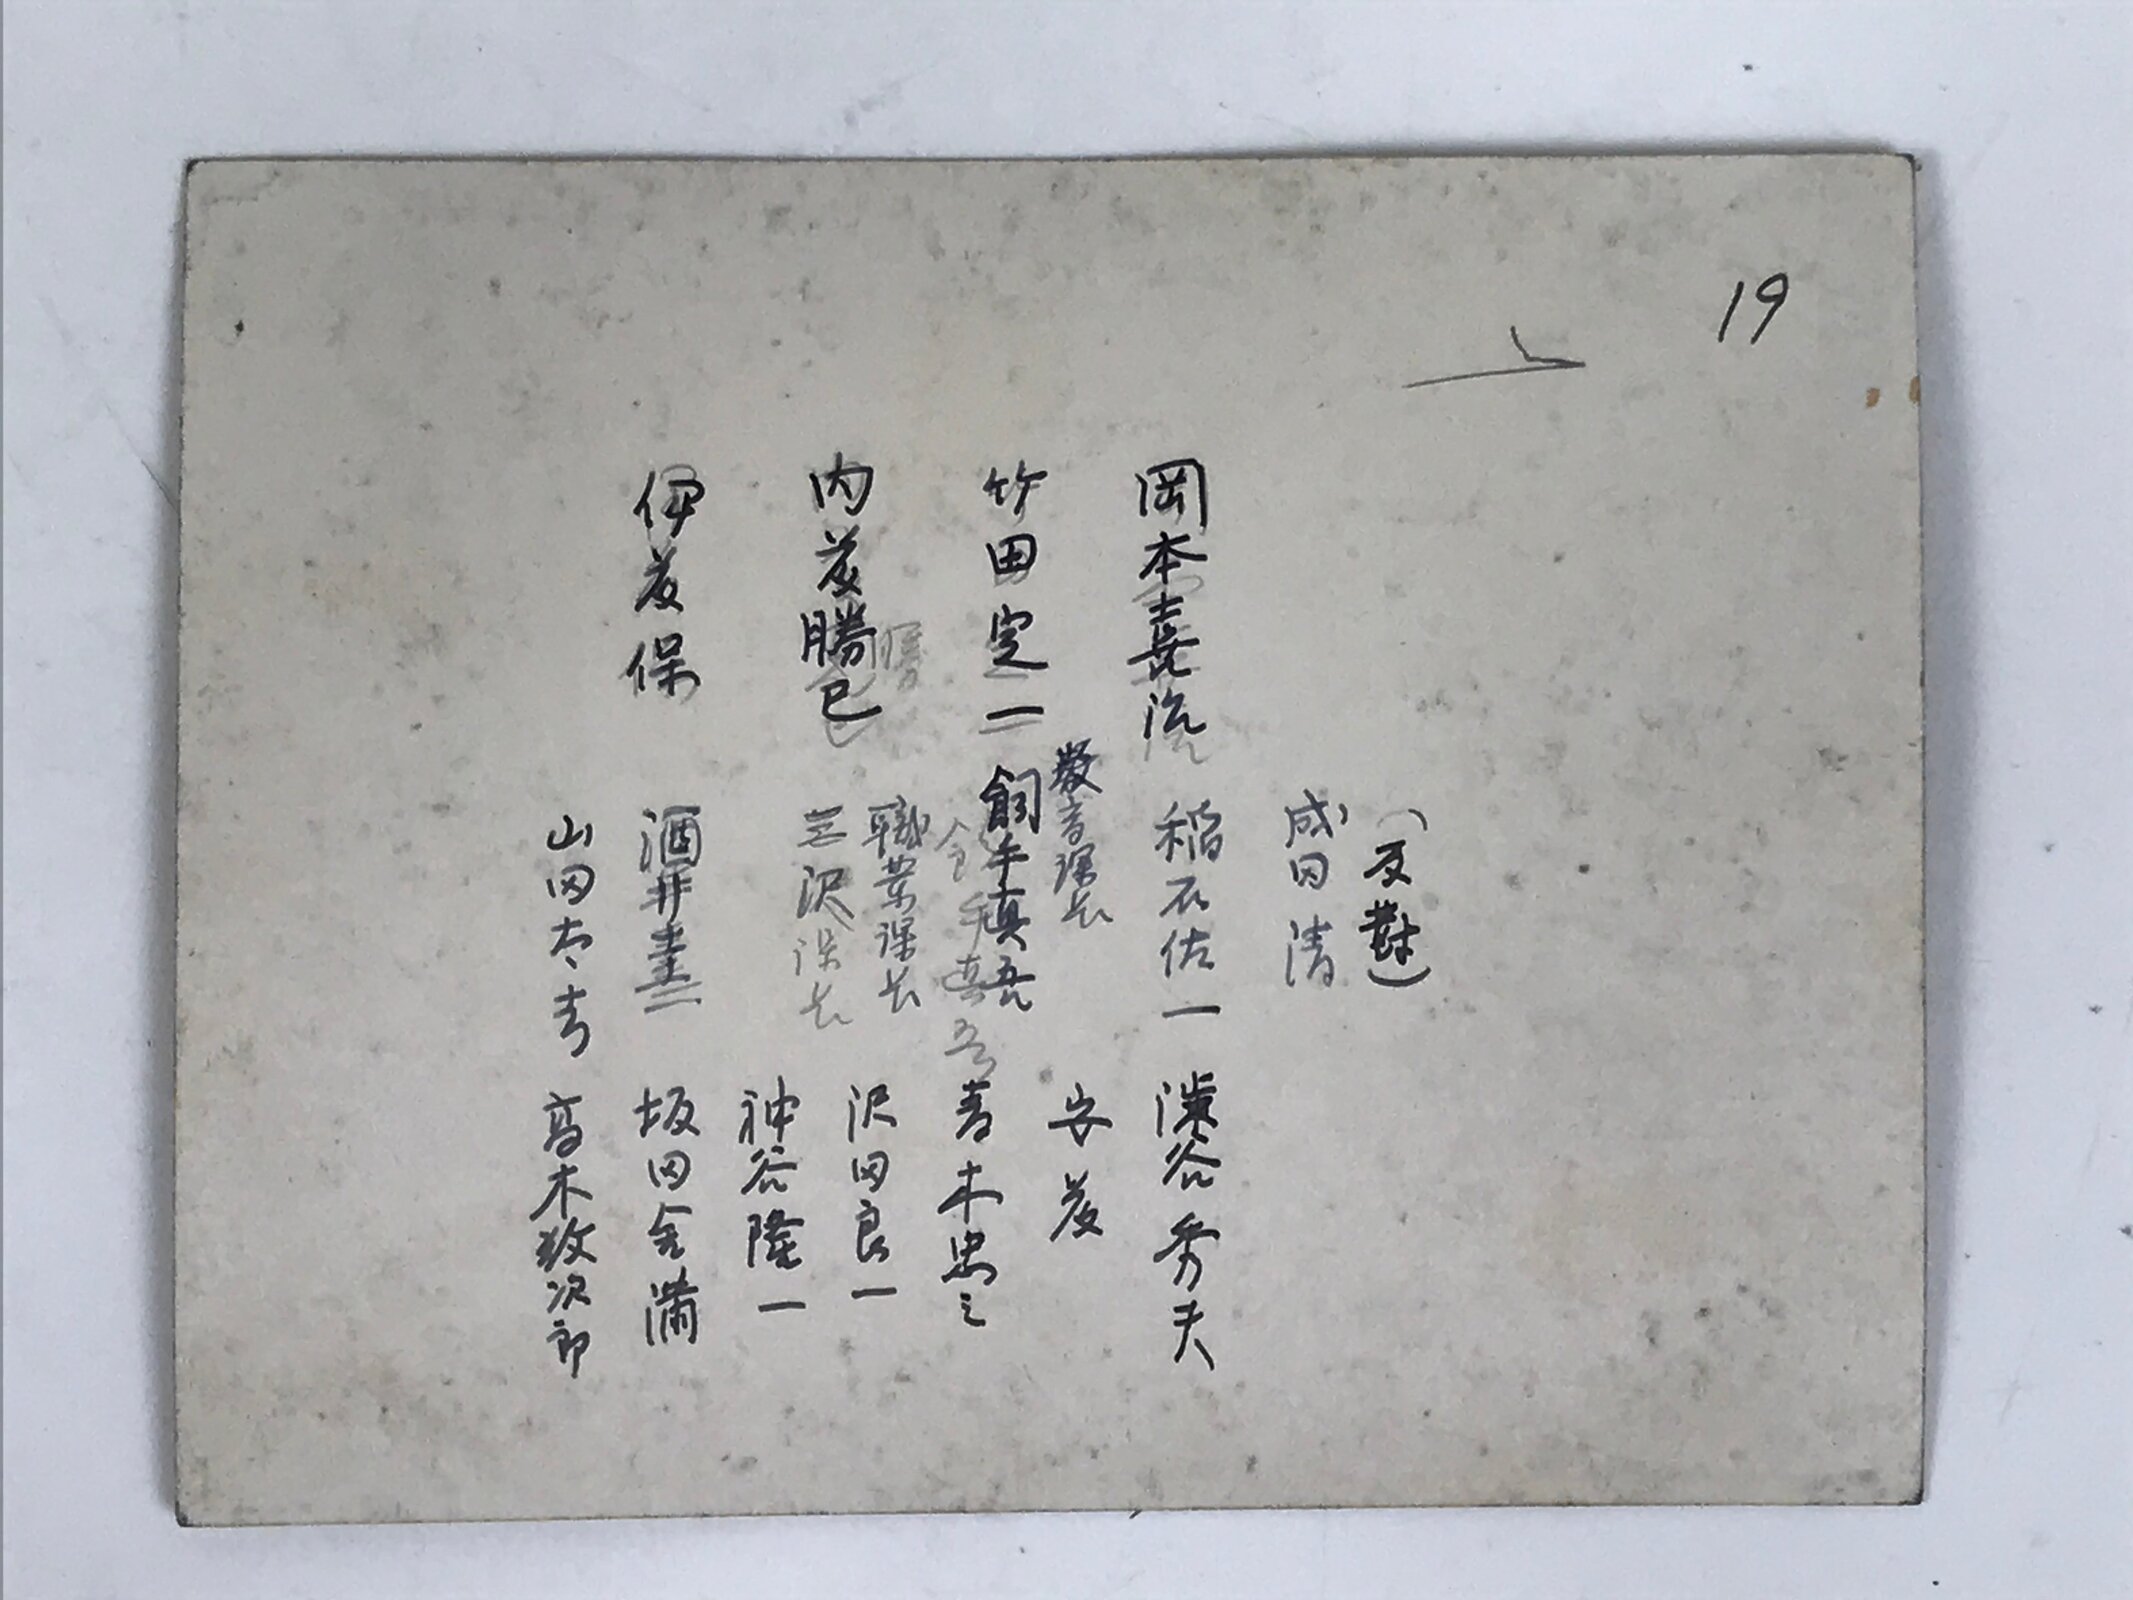 19
(反對)
成田清
岡本嘉流
稲石佐一
渋谷秀夫
教育課長
安藤
竹田定一
飼手真吾
青木忠之
職業課長
沢田良一
内藤勝巳
三沢課長
神谷隆一
伊藤保
酒井圭二
坂田金満
山田太吉
高木敬次郎